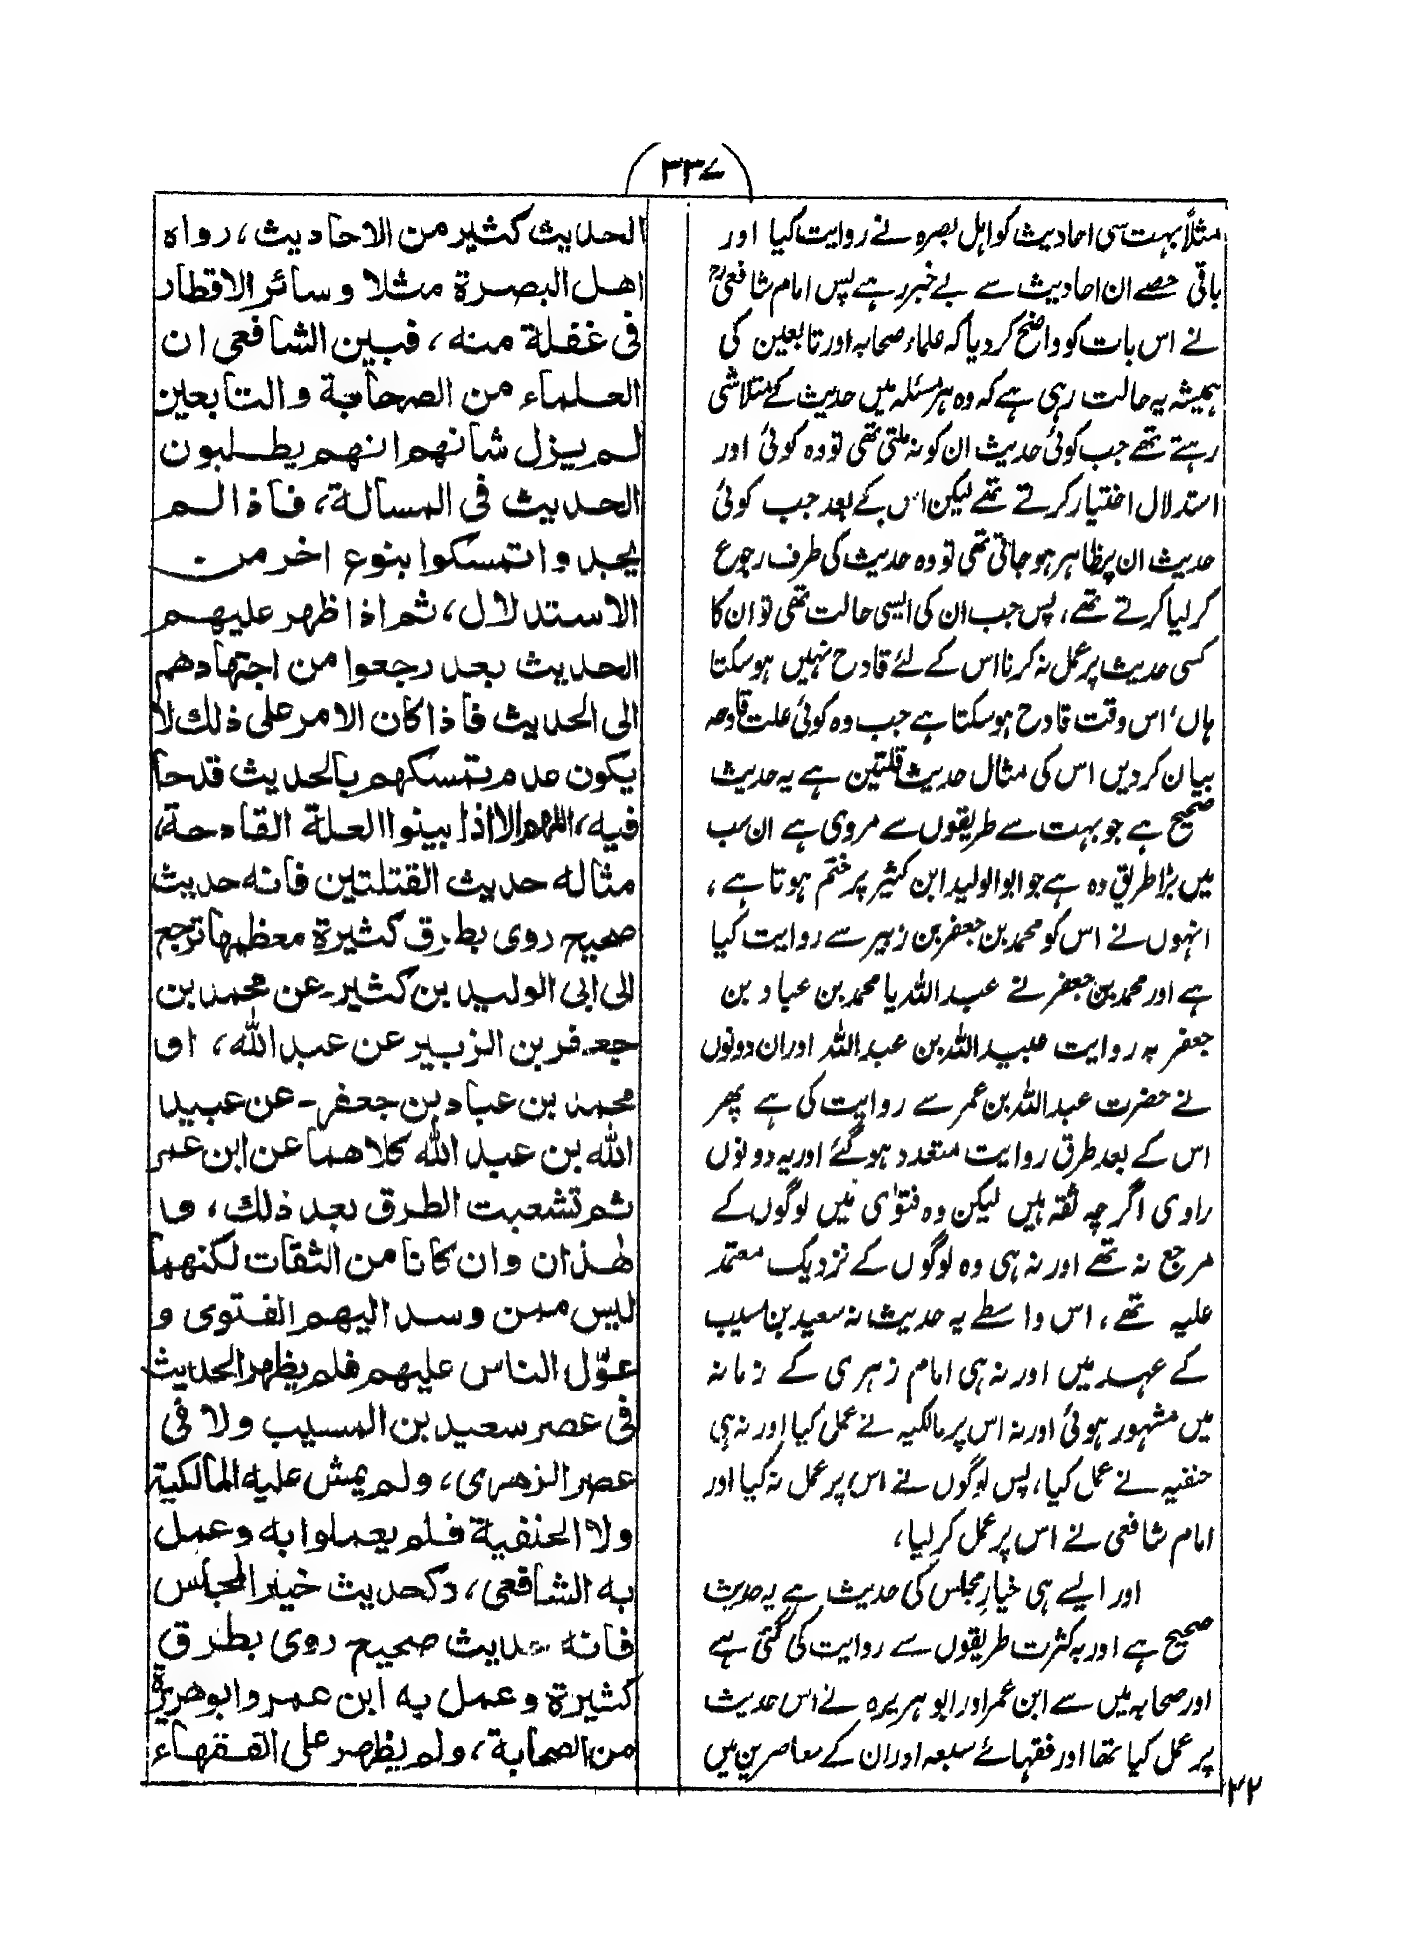 ۳۳۷
مثلاً بہت سی احادیث کو اہل بصرہ نے روایت کیا اور
باقی حصے ان احادیث سے بے خبر رہے پس امام شافعیؒ
نے اس بات کو واضح کردیا کہ علماء صحابہ اور تابعین کی
ہمیشہ یہ حالت رہی ہے کہ وہ ہر مسئلہ میں حدیث کے متلاشی
رہتے تھے جب کوئی حدیث ان کو نہ ملتی تھی تو وہ کوئی اور
استدلال اختیار کرتے تھے لیکن اس کے بعد جب کوئی
حدیث ان پر ظاہر ہوجاتی تھی تو وہ حدیث کی طرف رجوع
کرلیا کرتے تھے، پس جب ان کی ایسی حالت تھی تو ان کا
کسی حدیث پر عمل نہ کرنا اس کے لئے قادح نہیں ہوسکتا
ہاں، اس وقت قادح ہوسکتا ہے جب وہ کوئی علت قادحہ
بیان کردیں اس کی مثال حدیث قلتین ہے یہ حدیث
صحیح ہے جو بہت سے طریقوں سے مروی ہے ان سب
میں بڑا طریق وہ ہے جو ابوالولید ابن کثیر پر ختم ہوتا ہے،
انہوں نے اس کو محمد بن جعفر بن زبیر سے روایت کیا
ہے اور محمد بن جعفر نے عبد اللہ یا محمد بن عباد بن
جعفر بہ روایت عبید اللہ بن عبد اللہ اور ان دونوں
نے حضرت عبد اللہ بن عمر سے روایت کی ہے پھر
اس کے بعد طرق روایت متعدد ہوگئے اور یہ دونوں
راوی اگرچہ ثقہ ہیں لیکن وہ فتوٰی میں لوگوں کے
مرجع نہ تھے اور نہ ہی وہ لوگوں کے نزدیک معتمد
علیہ تھے، اس واسطے یہ حدیث نہ سعید بن مسیب
کے عہد میں اور نہ ہی امام زہری کے زمانہ
میں مشہور ہوئی اور نہ اس پر مالکیہ نے عمل کیا اور نہ ہی
حنفیہ نے عمل کیا، پس لوگوں نے اس پر عمل نہ کیا اور
امام شافعی نے اس پر عمل کرلیا،
اور ایسے ہی خیارِ مجلس کی حدیث ہے یہ حدیث
صحیح ہے اور بہ کثرت طریقوں سے روایت کی گئی ہے
اور صحابہ میں سے ابن عمر اور ابو ہریرہ نے اس حدیث
پر عمل کیا تھا اور فقہائے سبعہ اور ان کے معاصرین میں
الحدیث کثیر من الاحادیث، رواہ
اھل البصرۃ مثلا وسائر الاقطار
فی غفلة منه، فبین الشافعی ان
العلماء من الصحابة والتابعین
لم یزل شانھم انھم یطلبون
الحدیث فی المسالة، فاذا لم
یجدوا تمسکوا بنوع اخر من
الاستدلال، ثم اذا ظھر علیھم
الحدیث بعد رجعوا من اجتھادھم
الی الحدیث فاذا کان الامر علی ذلك لا
یکون عدم تمسکھم بالحدیث قدحا
فیه، اللھم الا اذا بینوا العلة القادحة،
مثاله حدیث القتلتین فانه حدیث
صحیح روی بطرق کثیرۃ معظمھا ترجع
الی ابی الولید بن کثیر۔ عن محمد بن
جعفر بن الزبیر عن عبد اللہ، او
محمد بن عباد بن جعفر۔ عن عبید
اللہ بن عبد اللہ کلاھما عن ابن عمر
ثم تشعبت الطرق بعد ذلك، و
ھذان وان کانا من الثقات لکنھما
لیس ممن وسد الیھم الفتوی و
عوّل الناس علیھم فلم یظھر الحدیث
فی عصر سعید بن المسیب ولا فی
عصر الزھری، ولم یمش علیه المالکیة
ولا الحنفیة فلم یعملوا به وعمل
به الشافعی، دکحدیث خیار المجلس
فانه حدیث صحیح روی بطرق
کثیرۃ وعمل به ابن عمر وابو ھریرۃ
من الصحابة، ولم یظھر علی الفقھاء
۲۲